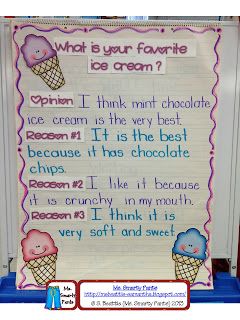 What is your favorite
ice cream?
Opinion I think mint chocolate
ice cream is the very best.
Reason #1 It is the best
because it has chocolate
chips.
Reason #2 I like it because
it is crunchy in my mouth.
Reason #3 I think it is
very soft and sweet.
Ms.
Smarty
Pants
Ms. Smarty Pants
© S. Beattie (Ms. Smarty Pants) 2013